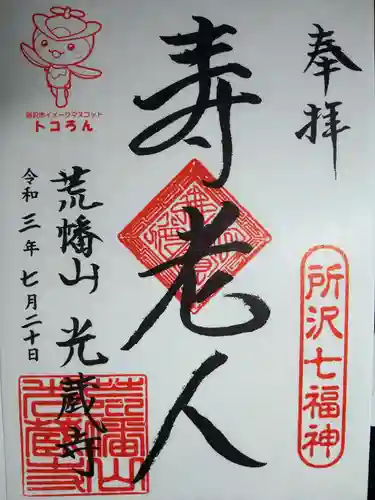 奉拝
所沢七福神
寿老人
荒幡山 光蔵寺
令和三年七月二十日
所沢市イメージマスコット
トコろん